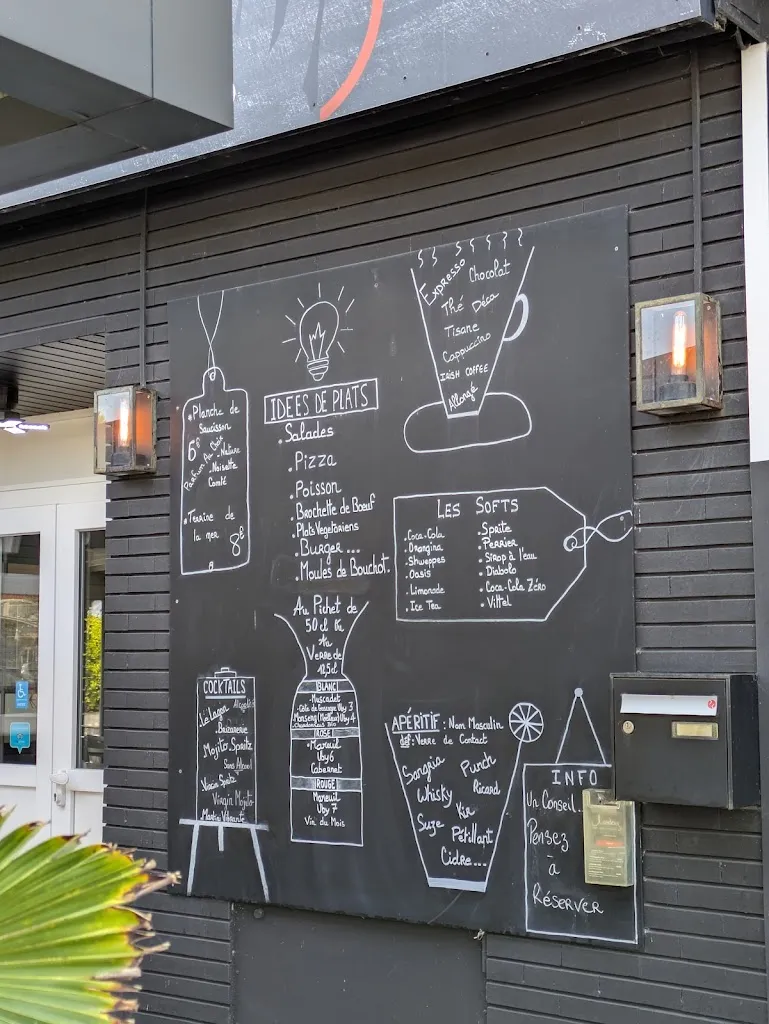 Planche de
Saucisson
6€
Parfum Au Choix
Nature
Noisette
Comté
Terrine de
la mer 8€
IDEES DE PLATS
Salades
Pizza
Poisson
Brochette de Bœuf
Plats Vegetariens
Burger...
Moules de Bouchot.
Expresso
Chocolat
Thé Déca
Tisane
Cappuccino
IRISH COFFEE
Allongé
LES SOFTS
Coca-Cola
Orangina
Shweppes
Oasis
Limonade
Ice Tea
Sprite
Perrier
Sirop à l'eau
Diabolo
Coca-Cola Zéro
Vittel
Au Pichet de
50 cl Ou
Au
Verre de
12,5cl
BLANC
Muscadet
Côte de Gascogne Uby 3
Manseng (Moelleux) Uby 4
Chardonnay
ROSÉ
Mareuil
Uby 6
Cabernet
ROUGE
Mareuil
Uby 7
Vin du Mois
COCKTAILS
Alcoolisés
Le Lagon
Mojito Spritz
Sans Alcool
Virgin Spritz
Virgin Mojito
APÉRITIF : Nom Masculin
def : Verre de Contact
Sangria
Punch
Whisky
Ricard
Kir
Suze
Pétillant
Cidre...
INFO
Un Conseil..
Pensez
à
RÉSERVER